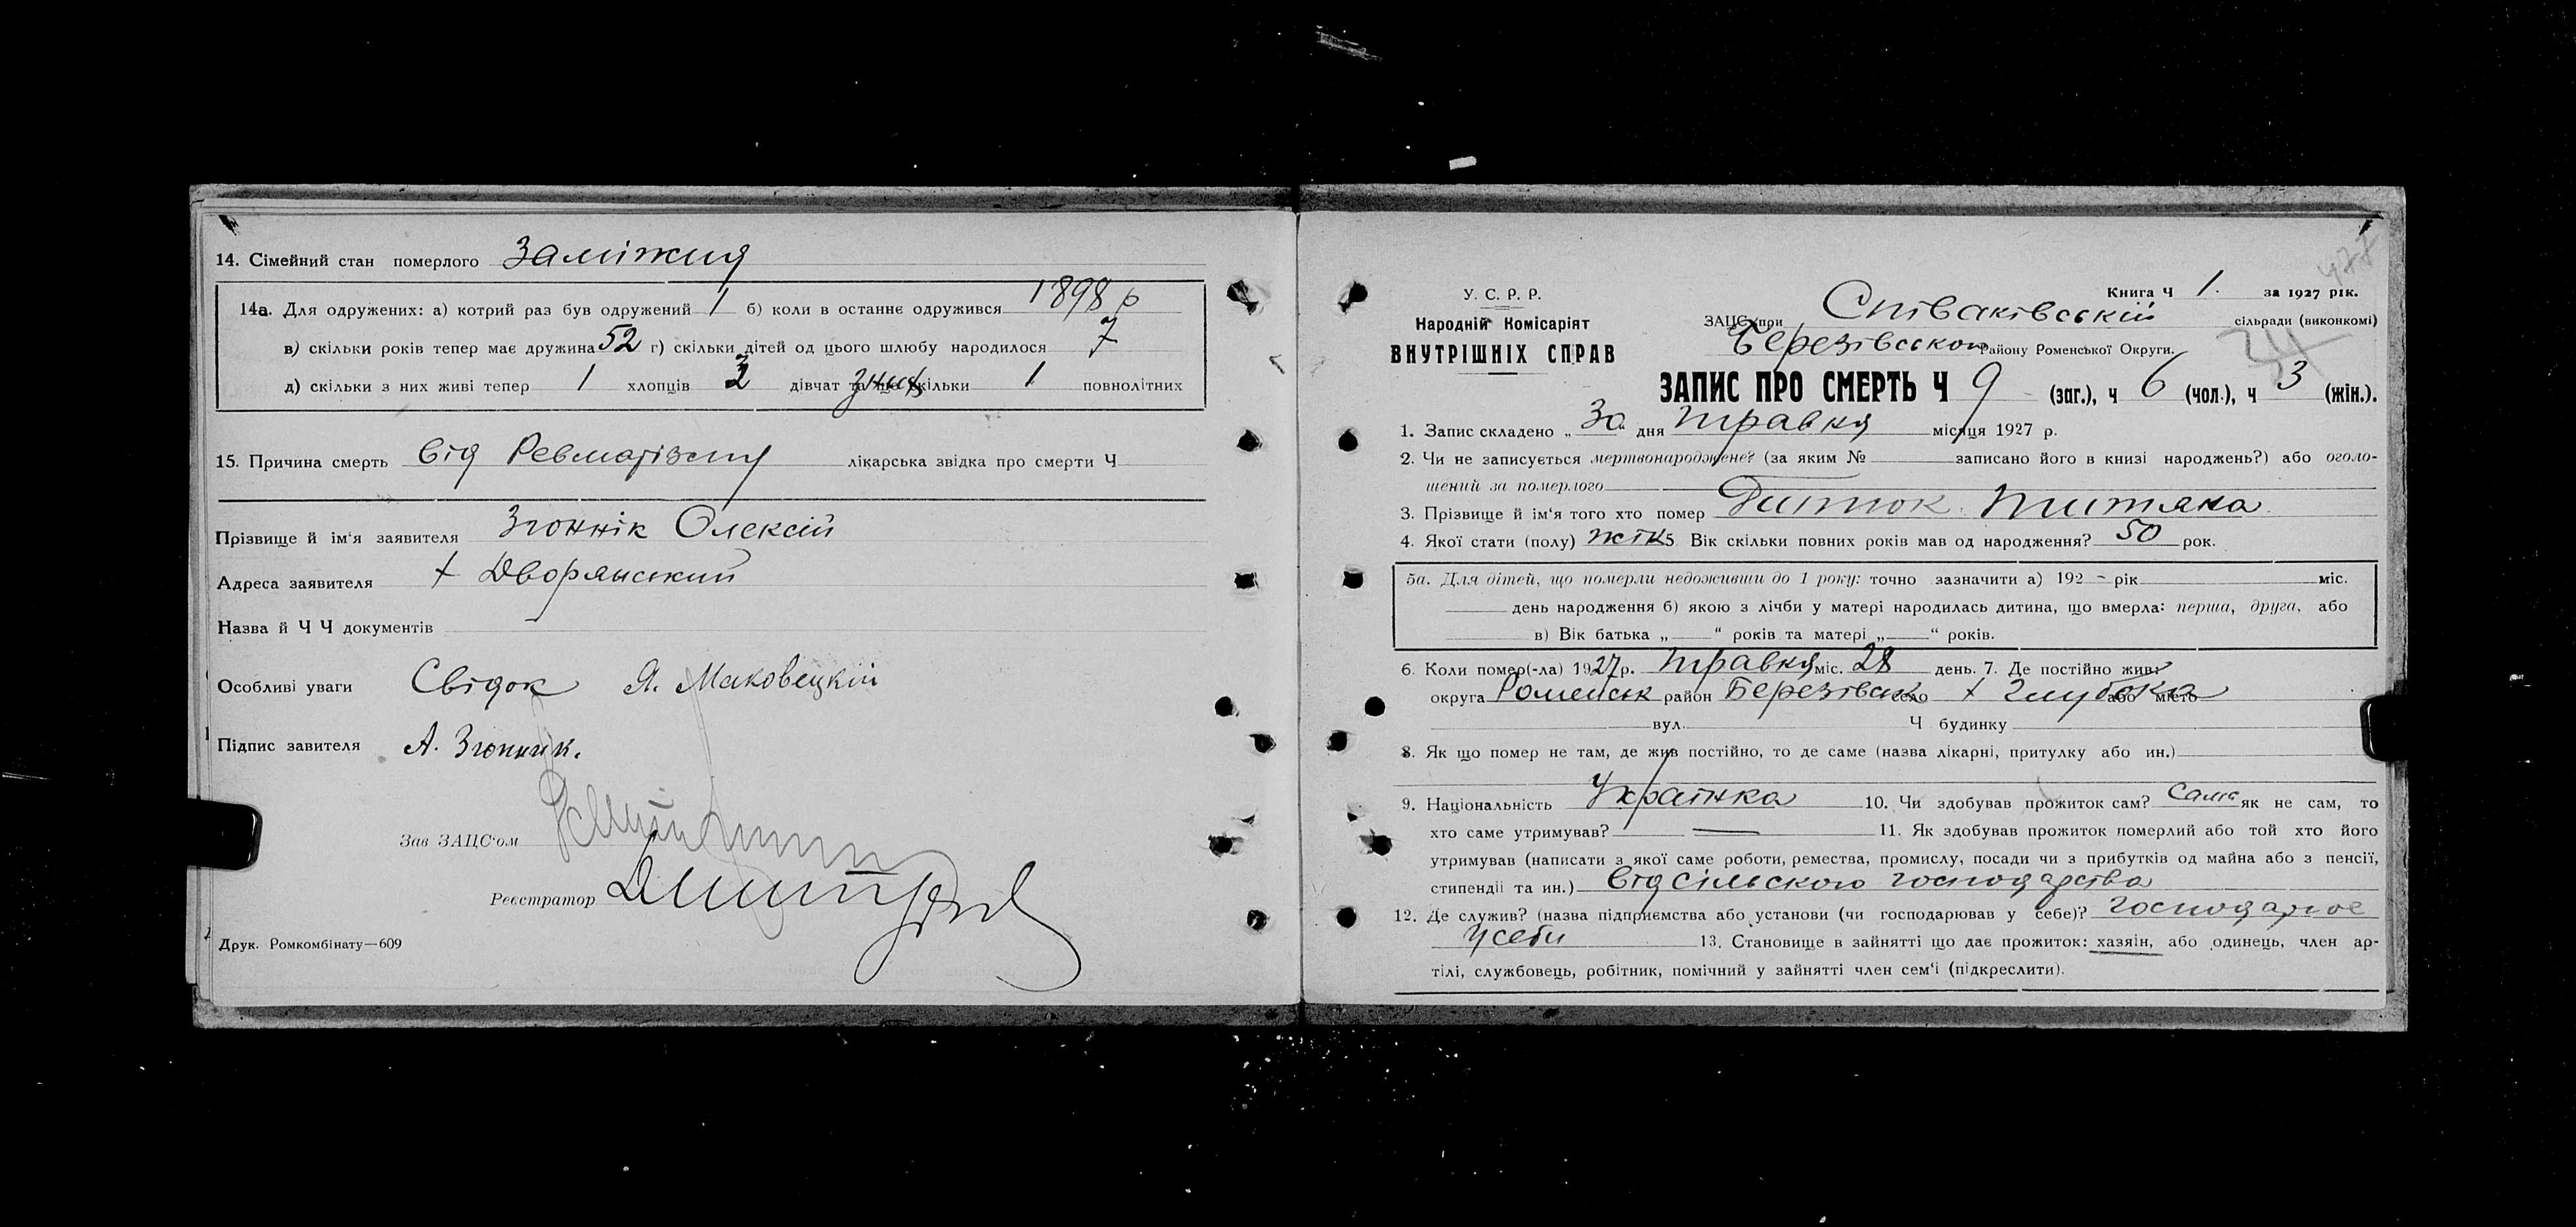 14. Сімейний стан померлого Заміжня
14а. Для одружених: а) котрий раз був одружений 1 б) коли в останнє одружився 1898 р
в) скільки років тепер має дружина 52 г) скільки дітей од цього шлюбу народилося 7
д) скільки з них живі тепер 1 хлопців 2 дівчат та ще скільки з них 1 повнолітних
15. Причина смерть від Ревматізму лікарська звідка про смерти Ч
Прізвище й ім'я заявителя Згоннік Олексій
Адреса заявителя х Дворянський
Назва й Ч Ч документів
Особливі уваги Свідок Я. Маковецкій
Підпис завителя А. Згонник.
Зав ЗАЦС'ом
Реєстратор
Друк. Ромкомбінату—609
477
У. С. Р. Р.
Народній Комісаріят
ВНУТРІШНІХ СПРАВ
Книга Ч 1. за 1927 рік.
ЗАЦС при Співаківській сільради (виконкомі)
Березівськог Району Роменської Округи.
34
ЗАПИС ПРО СМЕРТЬ Ч 9 (заг.), ч 6 (чол.), ч 3 (жін.).
1. Запис складено „30“ дня травня місяця 1927 р.
2. Чи не записується мертвонароджене? (за яким № записано його в книзі народжень?) або оголо-
шений за померлого
3. Прізвище й ім'я того хто помер
4. Якої стати (полу) жін 5. Вік скільки повних років мав од народження? 50 рок.
5а. Для дітей, що померли недоживши до 1 року: точно зазначити а) 192 – рік міс.
день народження б) якою з лічби у матері народилась дитина, що вмерла: перша, друга, або
в) Вік батька „ “ років та матері „ “ років.
6. Коли помер(-ла) 1927 р. травня міс. 28 день. 7. Де постійно жив:
округа Роменськ район Березівськ село х Глубока або місто
вул. Ч будинку
8. Як що помер не там, де жив постійно, то де саме (назва лікарні, притулку або ин.)
9. Національність Українка 10. Чи здобував прожиток сам? Сама як не сам, то
хто саме утримував? — 11. Як здобував прожиток померлий або той хто його
утримував (написати з якої саме роботи, ремества, промислу, посади чи з прибутків од майна або з пенсії,
стипендії та ин.) від сільского господарства
12. Де служив? (назва підприємства або установи (чи господарював у себе)? господарює
у себи 13. Становище в зайнятті що дає прожиток: хазяїн, або одинець, член ар-
тілі, службовець, робітник, помічний у зайнятті член сем'ї (підкреслити).